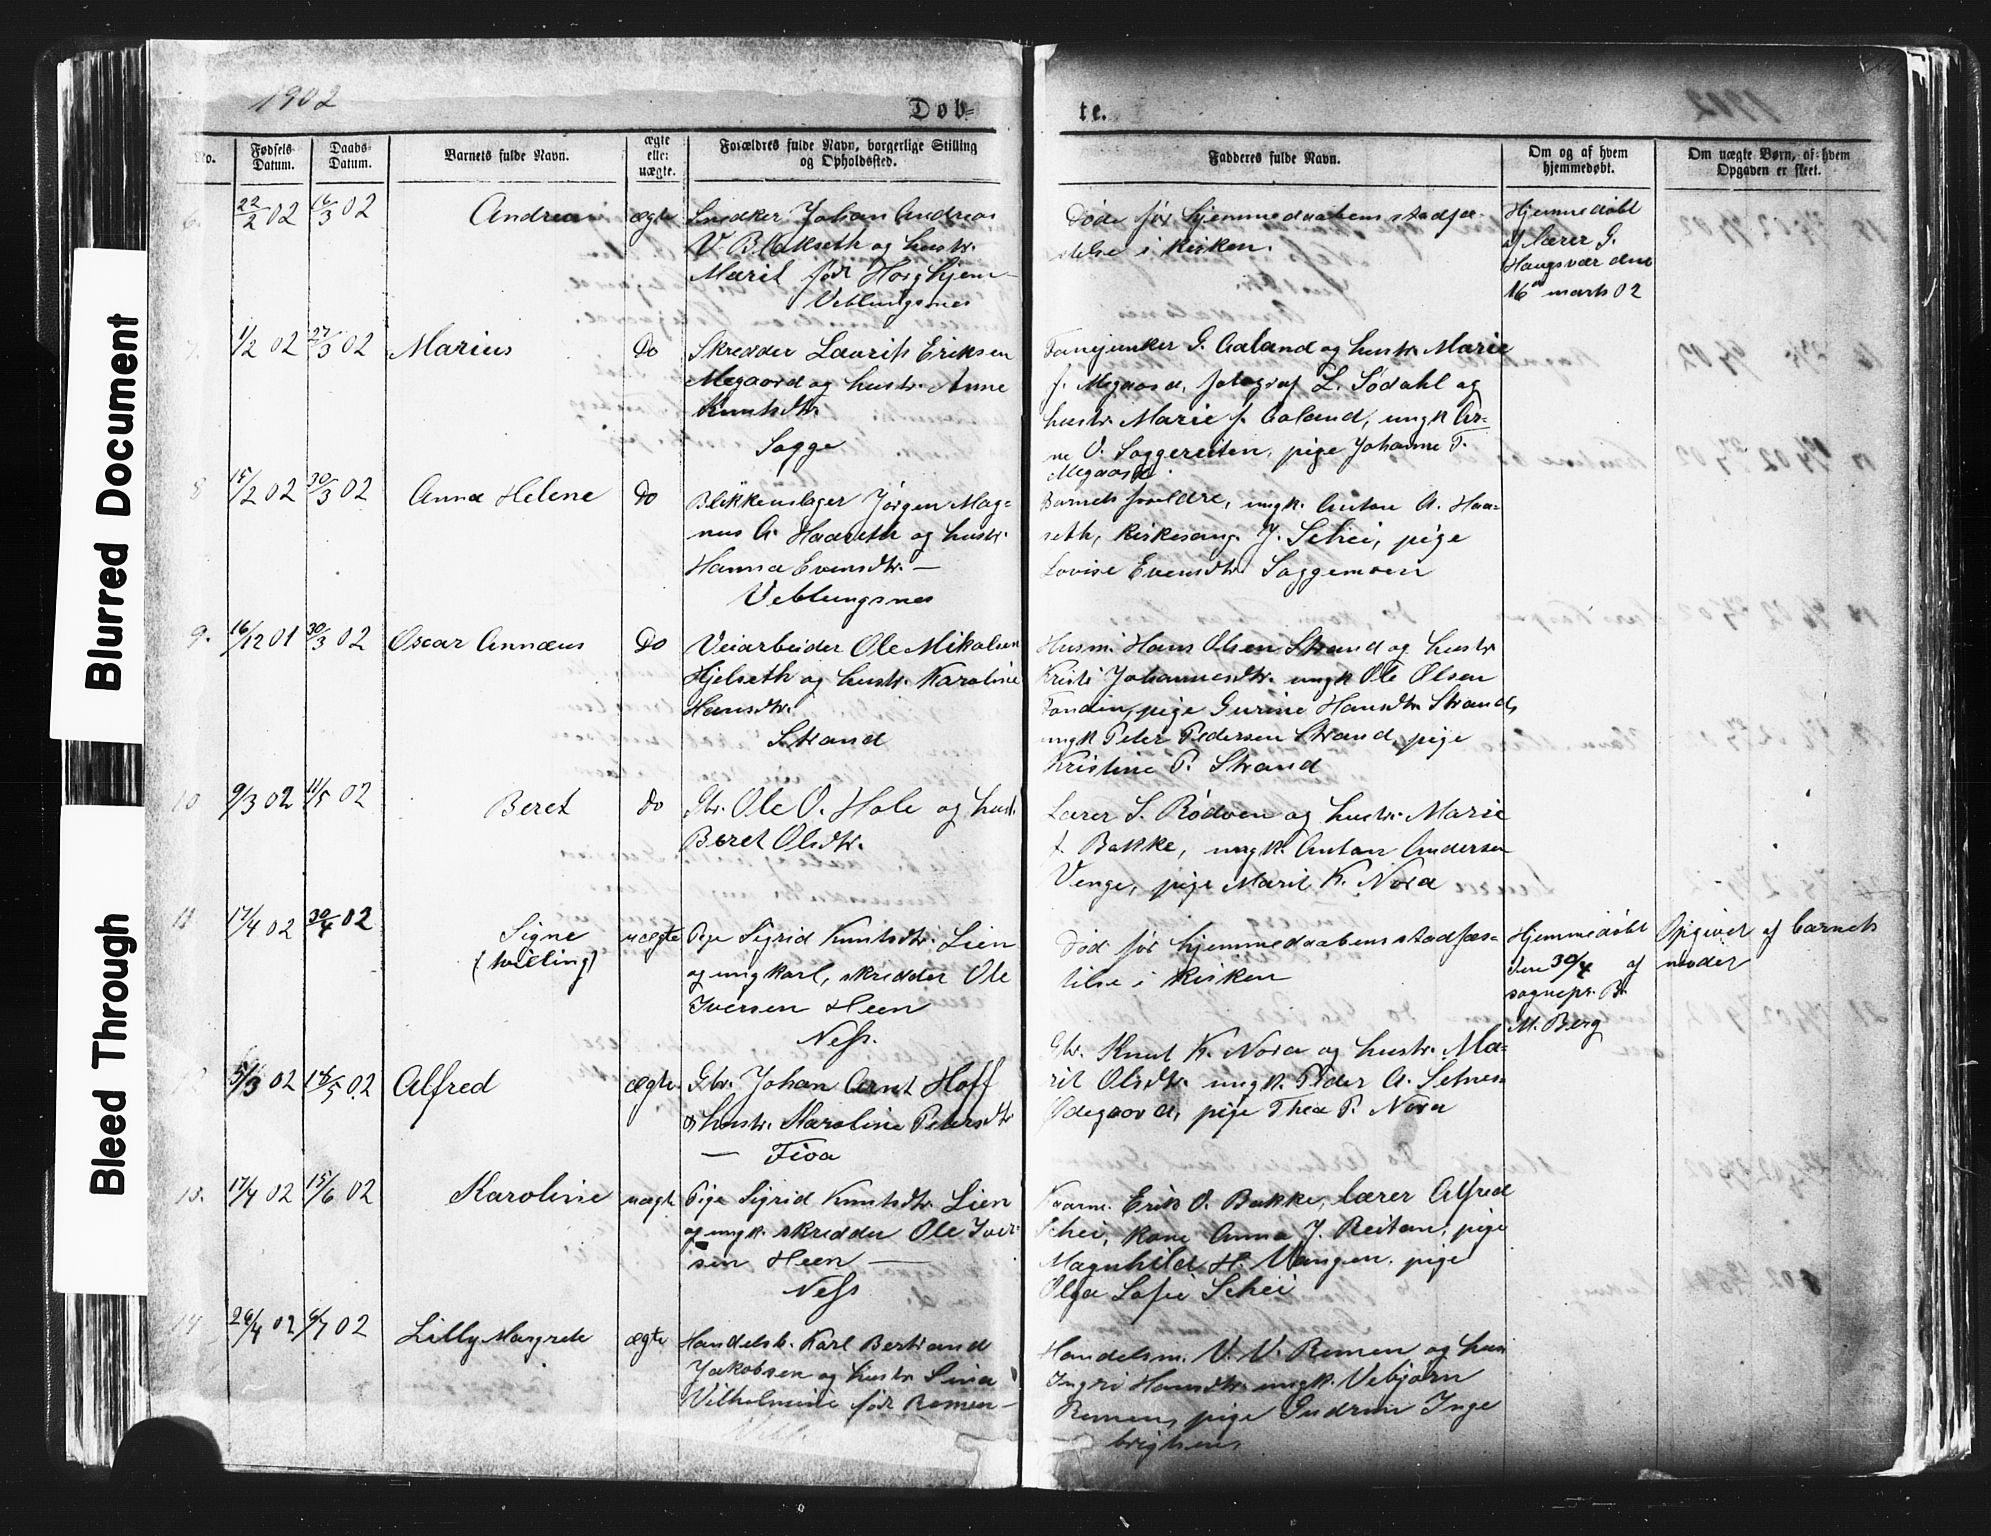 1902
Døb=
te.
1902
No.
Fødsels-
Datum.
Daabs-
Datum.
Barnets fulde Navn.
ægte
eller
uægte.
Forældres fulde Navn, borgerlige Stilling
og Opholdssted.
Fadderes fulde Navn.
Om og af hvem
hjemmedøbt.
Om uægte Børn, af hvem
Opgaven er skeet.
6. 22/2 02 16/3 02 Andreas ægte Snedker Johan Andreas
V. Blakseth og hustr.
Marit før Horghjem -
Veblungsnes
Døde før hjemmedaabens stadfæ-
stelse i kirken.
Hjemmedøbt
af lærer G.
Haugsvær den
16de marts 02
7. 1/2 02 27/3 02 Marius Do Skredder Laurits Eriksen
Megaard og hustr. Anne
Knutsdtr.
Sogge
Fanejunker G. Aaland og hustr. Marie
f. Megaard, fotograf L. Sødahl og
hustr. Marie f. Aaland, ungk. Ar-
ne O. Soggereiten, pige Johanne T.
Megaard.
8 15/2 02 30/3 02 Anna Helene Do Blikkenslager Jørgen Mag-
nus A. Haaseth og hustr.
Hanna Evensdtr. —
Veblungsnes
Barnets forældre, ungk. Anton A. Haa-
seth, kirkesang. J. Schei, pige
Lovise Evensdtr. Soggemoen
9. 16/12 01 30/3 02 Oscar Annæus Do Veiarbeider Ole Mikalsen
Hjelseth og hustr. Karoline
Hansdtr.
Strand
Husm. Hans Olsen Strand og hustr.
Kristi Johannesdtr. ungk Ole Olsen
pige Gurine Hansdtr. Strand,
ungk Peter Pedersen Strand, pige
Kristine P. Strand
10 9/3 02 11/5 02 Beret do Gbr. Ole O. Hole og hust.
Beret Olsdtr.
Lærer S. Rødven og hustr. Marie
f. Bakke, ungk. Anton Andersen
Venge, pige Marit K. Nora
11. 17/4 02 30/4 02 Signe
(tvilling)
uægte Pige Sigrid Knutsdtr. Lien
og ungkarl, skredder Ole
Iversen Heen
Ness.
Død før hjemmedaabens stadfæs-
telse i kirken
Hjemmedøbt
den 30/4 af
sognepr. B.
M. Berg
Opgivet af barnets
moder
12. 5/3 02 18/5 02 Alfred ægte Gbr. Johan Arnt Hoff
og hustr. Karoline Petersdtr
— Fiva
Gbr. Knut K. Nora og hustr. Ma-
rit Olsdtr. ungk. Peder A. Setnes-
Ødegaard, pige Thea P. Nora
13. 17/4 02 15/6 02 Karoline uægte Pige Sigrid Knutsdtr. Lien
og ungk. skredder Ole Iver-
sen Heen —
Ness
Kaarm. Erik O. Bakke, lærer Alfred
Schei, kone Anna J. Reitan, pige
Magnhild H. Vangen, pige
Olga Sofie Schei
14 26/4 02 6/7 02 Lilly Margrete ægte Handelsb. Karl Bertrand
Jakobsen og hustr. Sina
Vilhelmine før Romen -
Handelsm. V. V. Romen og hus
Ingri Hansdtr. ungk. Vebjørn
Romen, pige Gudrun Inge
brigtsen
Blurred Document
Bleed Through